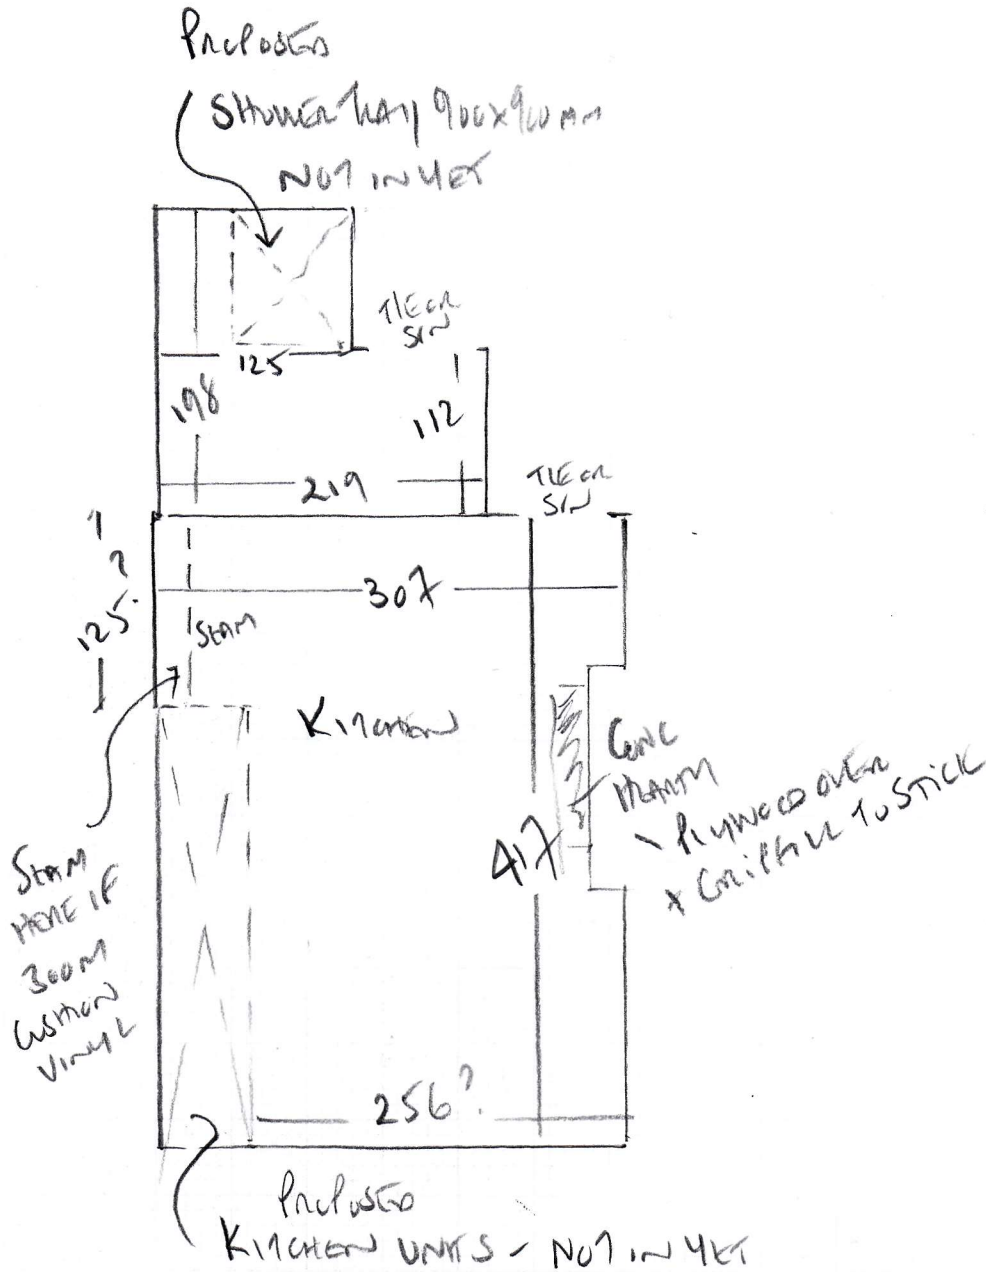 PROPOSED
SHOWER TRAY 900X900MM
NOT IN YET
TILE OR
S/N
125
198
112
219
TILE OR
S/N
?
?
125
307
SEAM
KITCHEN
CONC
HEARTH
PLYWOOD OVER
X GRIPFILL TO STICK
417
SEAM
HERE IF
300M
CUSHION
VINYL
256?
PROPOSED
KITCHEN UNITS - NOT IN YET